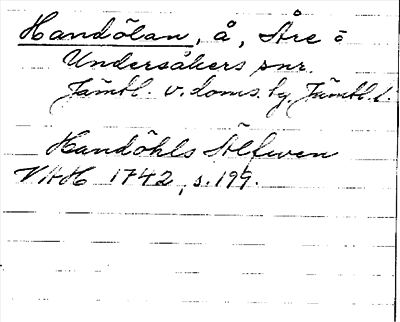 Handölan, å, Åre o
Undersåkers snr
Jämtl. v. doms. hg, Jämtl. l.
Handöhls Älfwen
VAH 1742, s. 199.